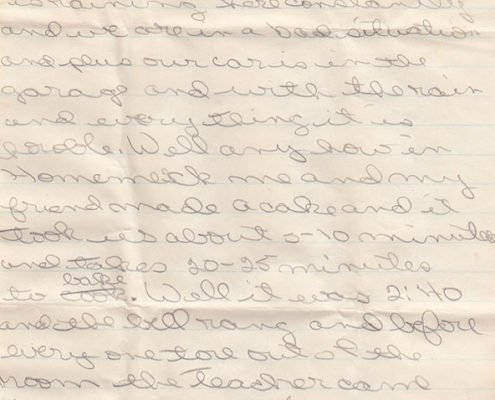 is raining here constantly
and we are in a bad situation
and plus our car is in the
garag and with the rain
and everything it is
horible. Well any how in
Homemeck me and my
friend made a cake and it
took us about 5-10 minutes
and takes 20-25 minutes
to bake. Well it was 2:40
and the bell rang and before
every one tore out of the
room the Teacher came